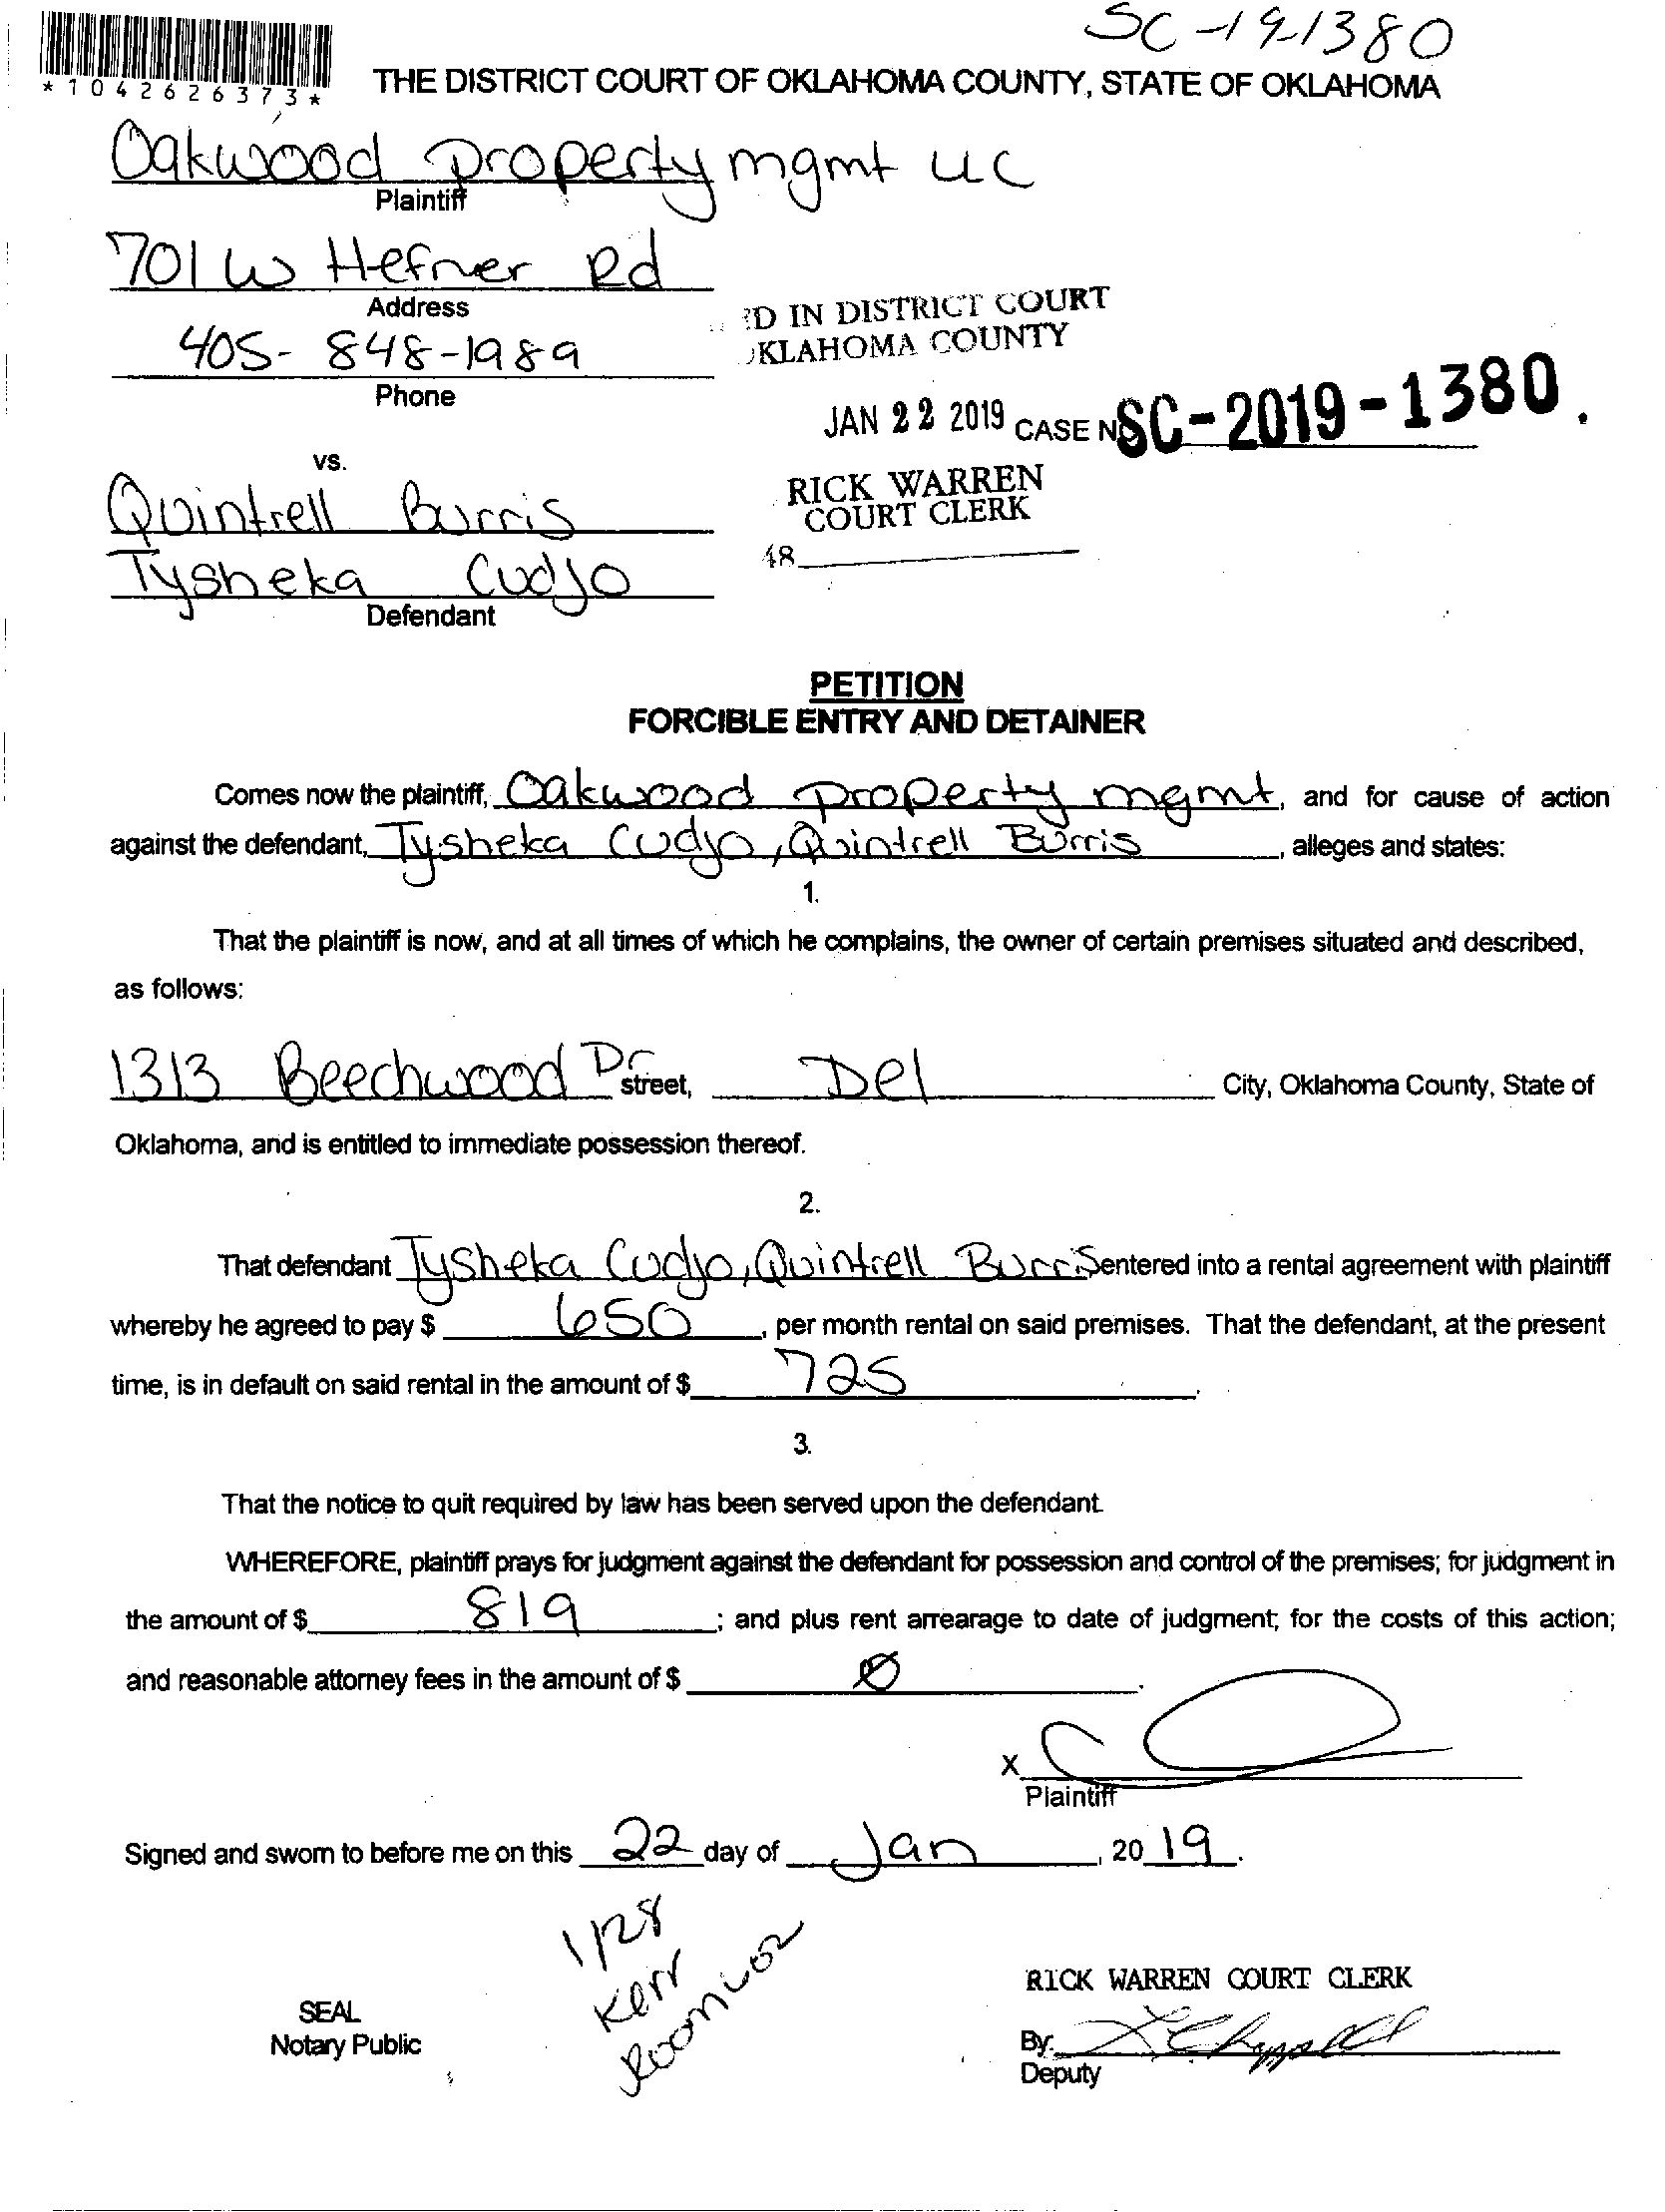 SC-19-1380
*1042626373*
THE DISTRICT COURT OF OKLAHOMA COUNTY, STATE OF OKLAHOMA
Oakwood property mgmt LLC
Plaintiff
701 W Hefner Rd
Address
405-848-1989
Phone
D IN DISTRICT COURT
KLAHOMA COUNTY
JAN 22 2019
CASE NO SC-2019-1380.
vs.
RICK WARREN
COURT CLERK
48
Quintrell Burris
Tysheka Cudjo
Defendant
PETITION
FORCIBLE ENTRY AND DETAINER
Comes now the plaintiff, Oakwood property mgmt, and for cause of action
against the defendant, Tysheka Cudjo, Quintrell Burris, alleges and states:
1.
That the plaintiff is now, and at all times of which he complains, the owner of certain premises situated and described,
as follows:
1313 Beechwood Dr street, Del City, Oklahoma County, State of
Oklahoma, and is entitled to immediate possession thereof.
2.
That defendant Tysheka Cudjo, Quintrell Burris entered into a rental agreement with plaintiff
whereby he agreed to pay $ 650, per month rental on said premises. That the defendant, at the present
time, is in default on said rental in the amount of $ 725.
3.
That the notice to quit required by law has been served upon the defendant.
WHEREFORE, plaintiff prays for judgment against the defendant for possession and control of the premises; for judgment in
the amount of $ 819; and plus rent arrearage to date of judgment; for the costs of this action;
and reasonable attorney fees in the amount of $ 0.
X
Plaintiff
Signed and sworn to before me on this 22 day of Jan, 2019.
1/28
Kerr
Room 402
RICK WARREN COURT CLERK
SEAL
Notary Public
By:
Deputy